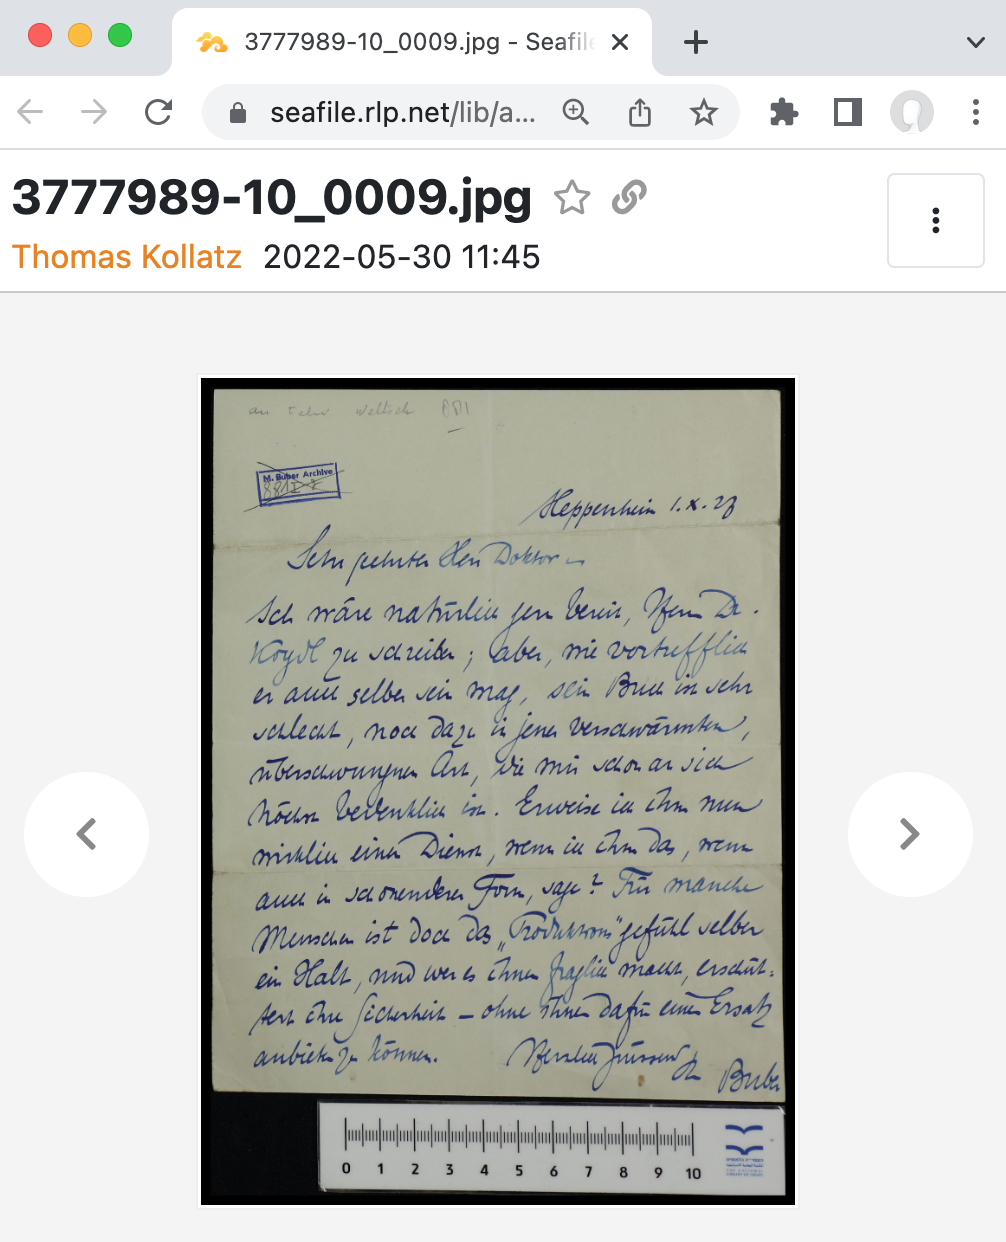 3777989-10_0009.jpg - Seafile
seafile.rlp.net/lib/a...
3777989-10_0009.jpg
Thomas Kollatz 2022-05-30 11:45
an Felix Weltsch
M. Buber Archive
Heppenheim 1.X.27
Sehr geehrter Herr Doktor –
Ich wäre natürlich gern bereit, Herrn Dr.
zu schreiben; aber, wie vortrefflich
er auch selber sein mag, sein Buch ist sehr
schlecht, noch dazu in jener verschwärmten,
überschwungnen Art, die mir schon an sich
höchst bedenklich ist. Erweise ich ihm nun
wirklich einen Dienst, wenn ich ihm das, wenn
auch in schonenderer Form, sage? Für manche
Menschen ist doch das „Produktions"gefühl selber
ein Halt, und wer es ihnen fraglich macht, erschüt-
tert ihre Sicherheit – ohne ihnen dafür einen Ersatz
anbieten zu können. Herzlich grüssend Ihr Buber
0 1 2 3 4 5 6 7 8 9 10